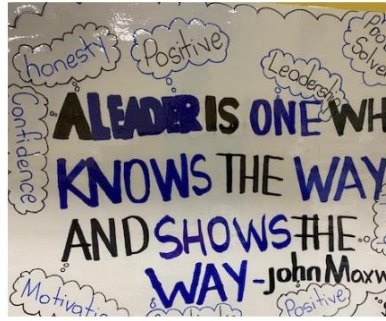 honesty
Positive
Leadership
Confidence
A LEADER IS ONE WH
KNOWS THE WAY
AND SHOWS THE
WAY-John Maxw
Motivati
Positive